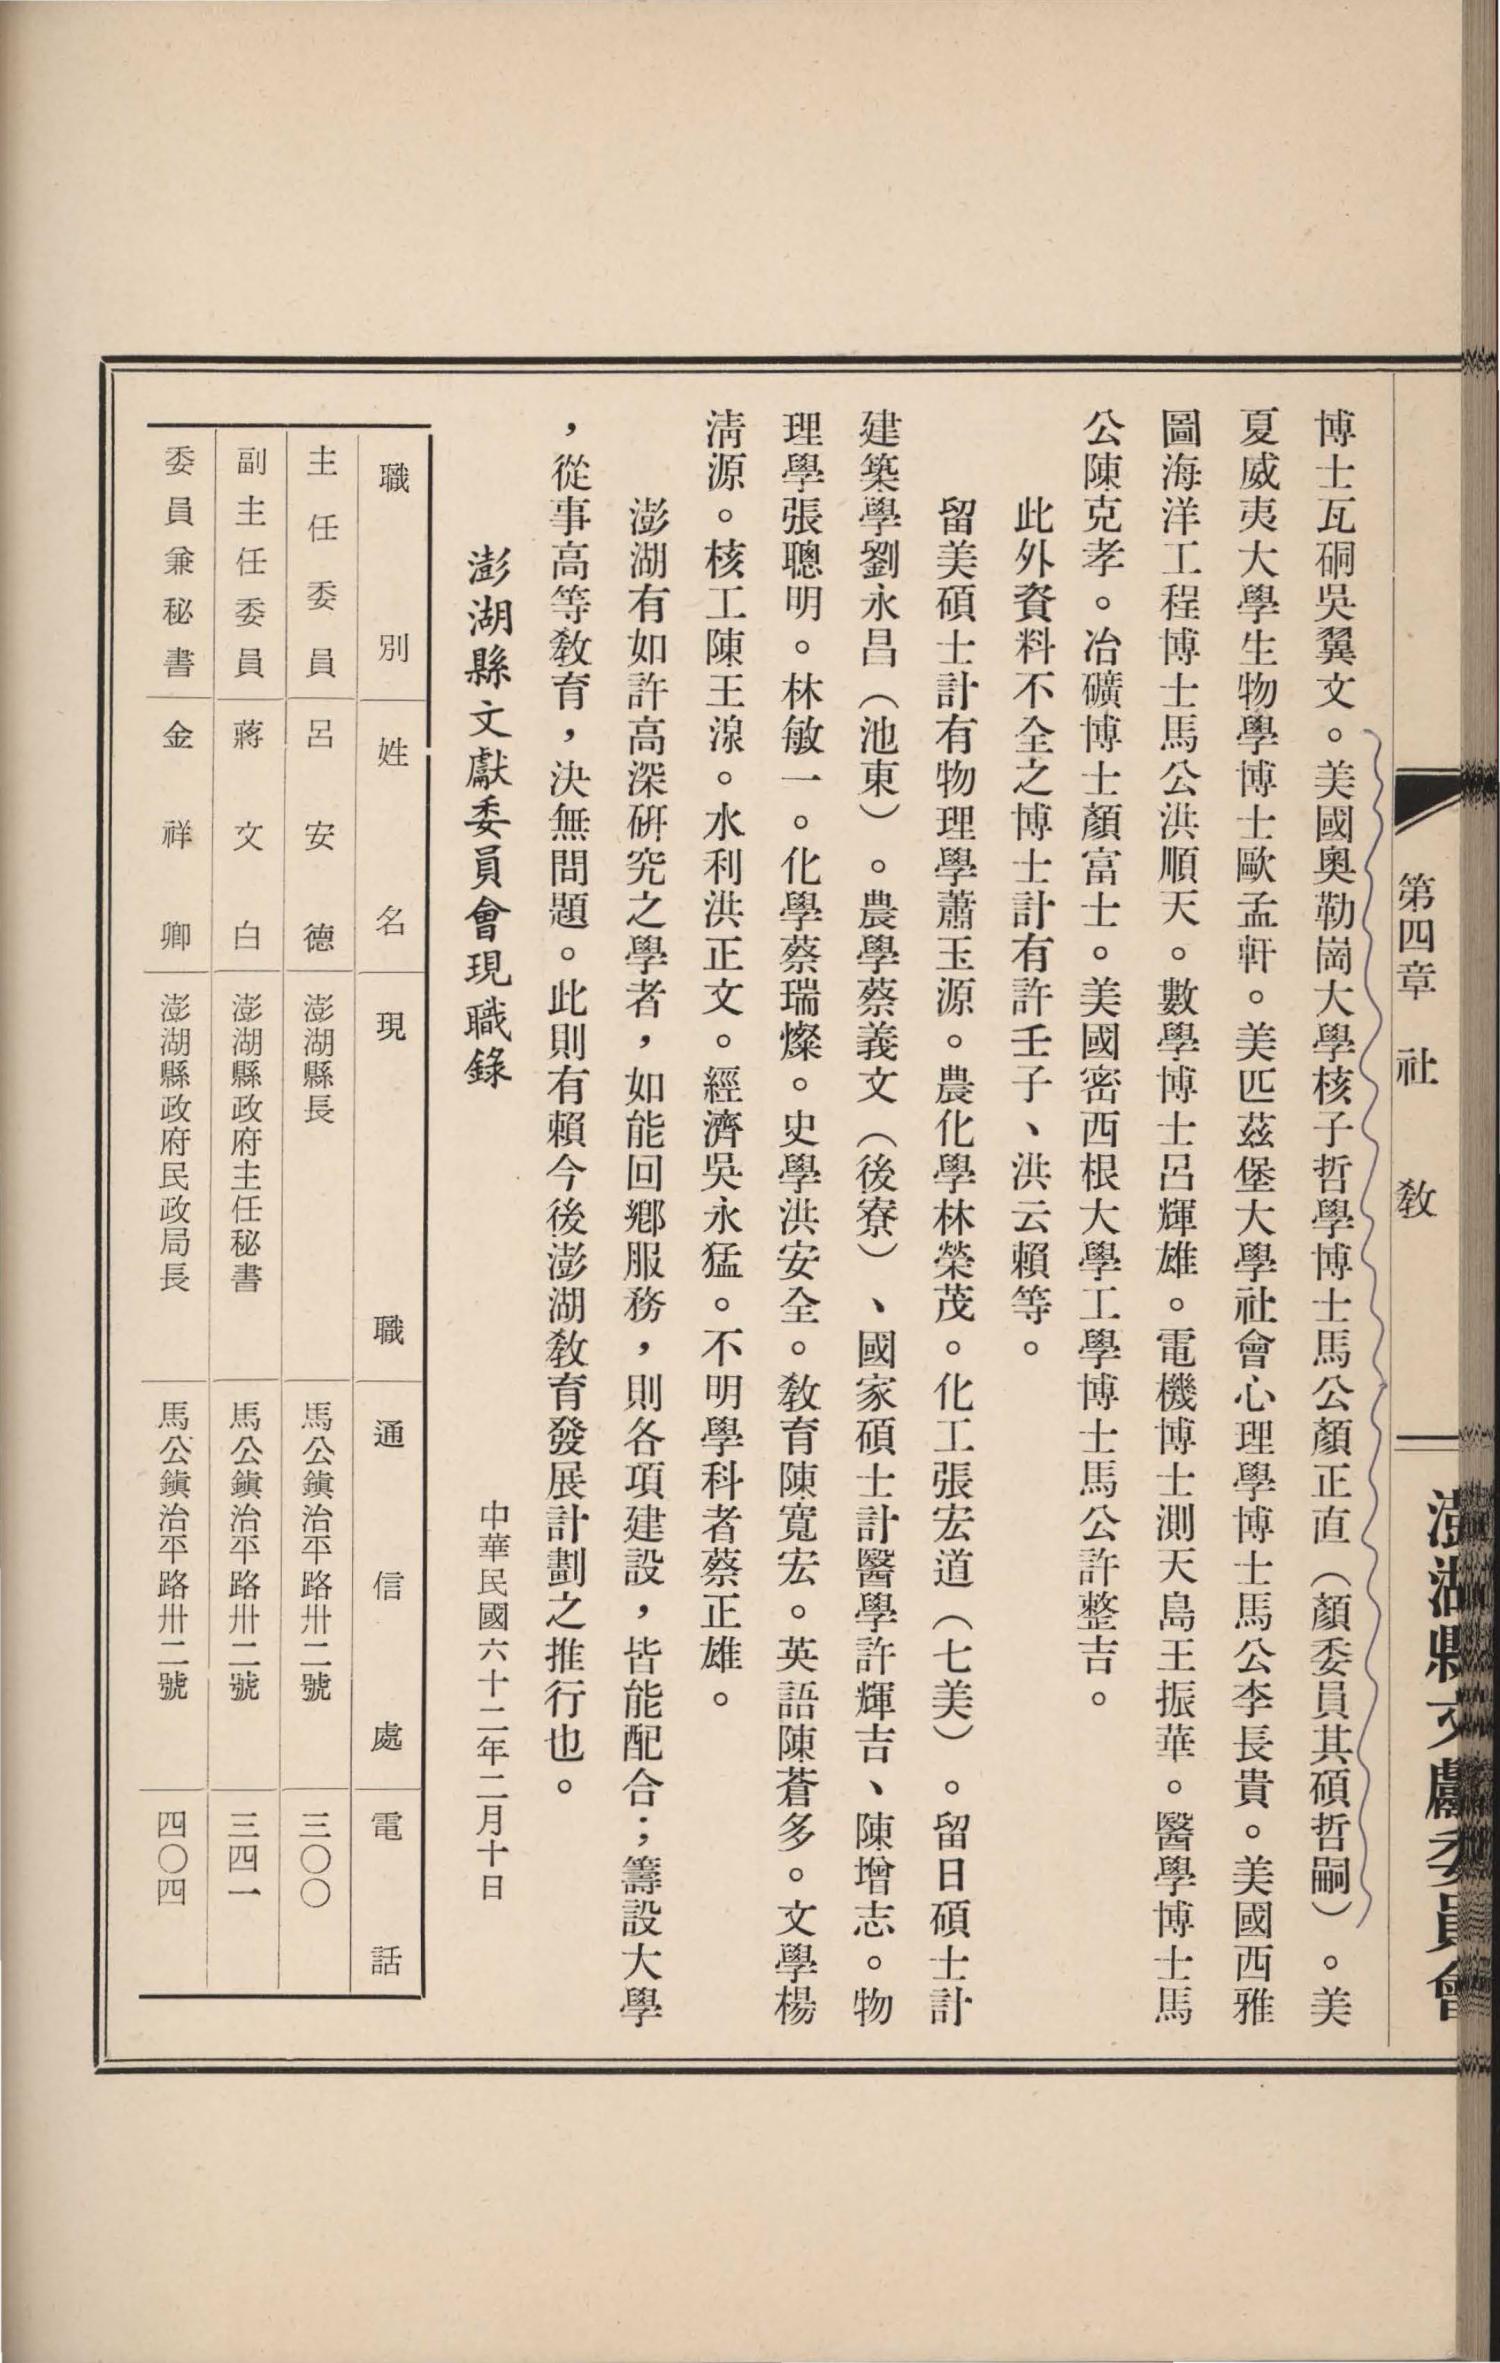 第四章　社　教
澎湖縣文獻委員會
博士瓦硐吳翼文。美國奧勒崗大學核子哲學博士馬公顏正直（顏委員其碩哲嗣）。美
夏威夷大學生物學博士歐孟軒。美匹茲堡大學社會心理學博士馬公李長貴。美國西雅
圖海洋工程博士馬公洪順天。數學博士呂輝雄。電機博士測天島王振華。醫學博士馬
公陳克孝。冶礦博士顏富士。美國密西根大學工學博士馬公許整吉。
此外資料不全之博士計有許壬子、洪云賴等。
留美碩士計有物理學蕭玉源。農化學林榮茂。化工張宏道（七美）。留日碩士計
建築學劉永昌（池東）。農學蔡義文（後寮）、國家碩士計醫學許輝吉、陳增志。物
理學張聰明。林敏一。化學蔡瑞燦。史學洪安全。教育陳寬宏。英語陳蒼多。文學楊
清源。核工陳王湶。水利洪正文。經濟吳永猛。不明學科者蔡正雄。
澎湖有如許高深研究之學者，如能回鄉服務，則各項建設，皆能配合；籌設大學
，從事高等教育，決無問題。此則有賴今後澎湖教育發展計劃之推行也。
澎湖縣文獻委員會現職錄　中華民國六十二年二月十日
職別　姓名　現職　通信處　電話
主任委員　呂安德　澎湖縣長　馬公鎮治平路卅二號　三〇〇
副主任委員　蔣文白　澎湖縣政府主任秘書　馬公鎮治平路卅二號　三四一
委員兼秘書　金祥卿　澎湖縣政府民政局長　馬公鎮治平路卅二號　四〇四